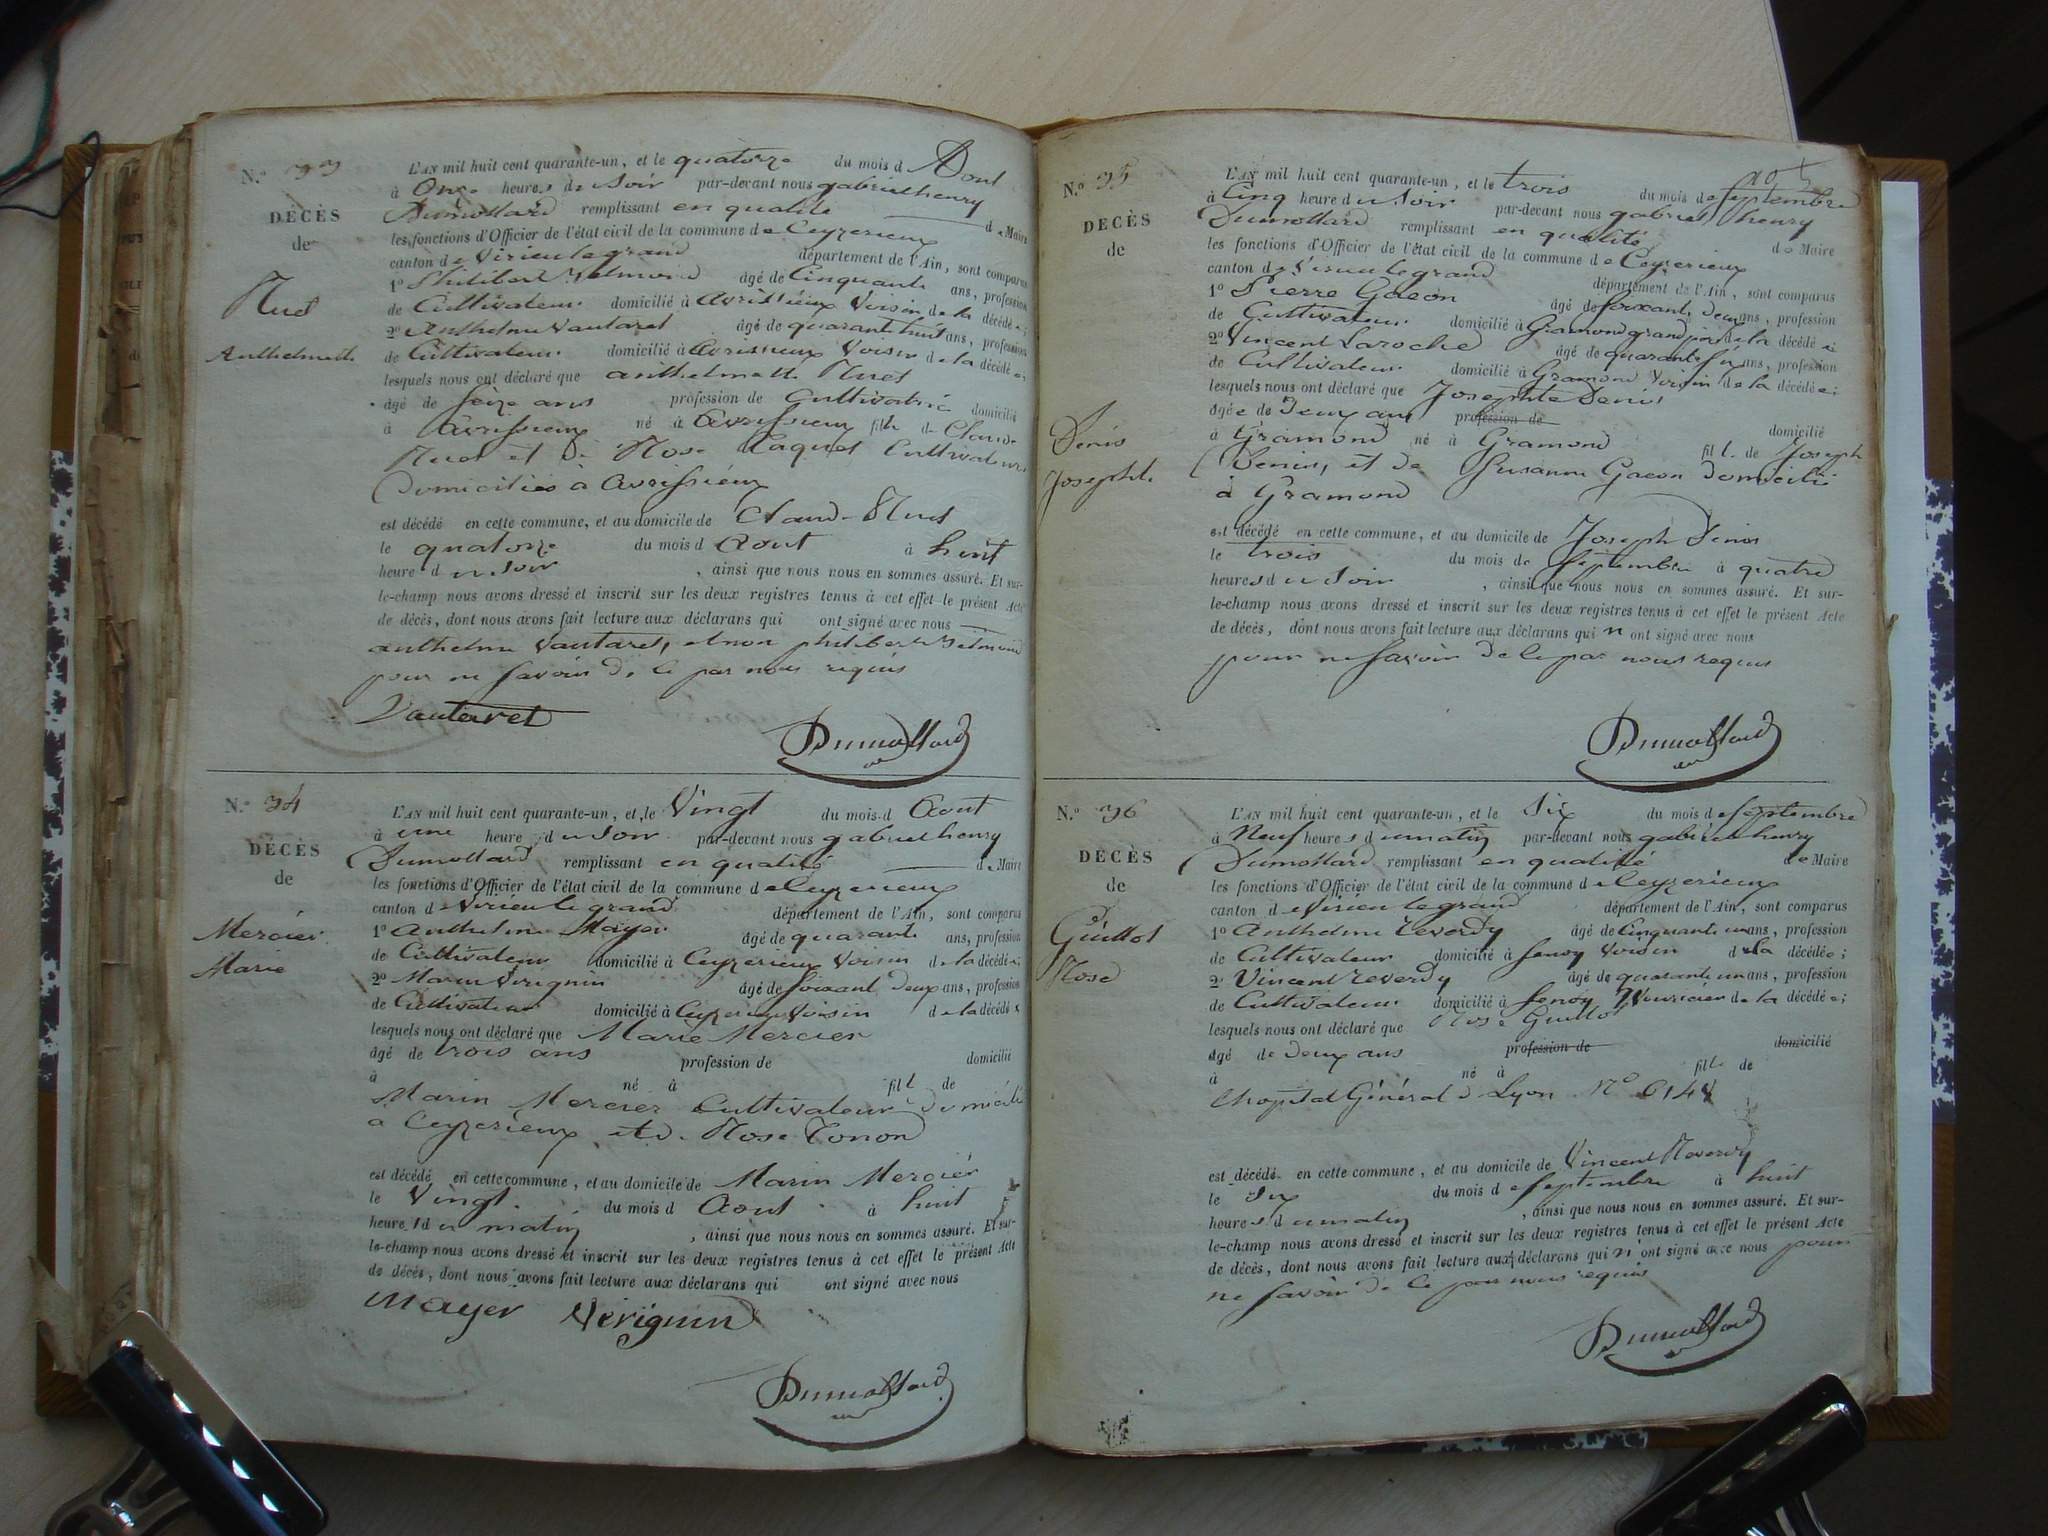 N.º 33
DÉCÈS
de
Nuet
Anthelmette
L'AN mil huit cent quarante-un, et le quatorze du mois d Aout
à Onze heures du Soir par-devant nous gabriel henry
Dumollard remplissant en qualité de Maire
les fonctions d'Officier de l'état civil de la commune de Ceyzerieux
canton de Virieu le grand département de l'Ain, sont comparus
1º Philibert âgé de Cinquante ans, profession
de Cultivateur domicilié à Avrissieux Voisin de la décédée;
2º Anthelme Vautaret âgé de quarante huit ans, profession
de Cultivateur domicilié à Avrissieux Voisin de la décédée;
lesquels nous ont déclaré que anthelmette Nuet
âgé de seize ans profession de Cultivatrice domicilié
à Avrissieux né à Avrissieux fille de Claude
Nuet et de Rose Paquet Cultivateurs
Domiciliés à Avrissieux
est décédé en cette commune, et au domicile de Claude Nuet
le quatorze du mois d Aout à huit
heure du Soir, ainsi que nous nous en sommes assuré. Et sur-
le-champ nous avons dressé et inscrit sur les deux registres tenus à cet effet le présent Acte
de décès, dont nous avons fait lecture aux déclarans qui ont signé avec nous
anthelme Vautaret, et non philibert
pour ne savoir de ce par nous requis
Vautaret Dumollard
N.º 34
DÉCÈS
de
Mercier
Marie
L'AN mil huit cent quarante-un, et le Vingt du mois d Aout
à une heure du Soir par-devant nous gabriel henry
Dumollard remplissant en qualité de Maire
les fonctions d'Officier de l'état civil de la commune de Ceyzerieux
canton de Virieu le grand département de l'Ain, sont comparus
1º Anthelme Mayer âgé de quarante ans, profession
de Cultivateur domicilié à Ceyzerieux Voisin de la décédée;
2º Marin Verignin âgé de soixante Deux ans, profession
de Cultivateur domicilié à Ceyzerieux Voisin de la décédée
lesquels nous ont déclaré que Marie Mercier
âgé de trois ans profession de domicilié
à né à fille de
Marin Mercier Cultivateur domicilié
à Ceyzerieux et de Rose Tonon
est décédé en cette commune, et au domicile de Marin Mercier
le Vingt du mois d Aout à huit
heures du matin, ainsi que nous nous en sommes assuré. Et sur-
le-champ nous avons dressé et inscrit sur les deux registres tenus à cet effet le présent Acte
de décès, dont nous avons fait lecture aux déclarans qui ont signé avec nous
Mayer Verignin
Dumollard
N.º 35
DÉCÈS
de
Denis
Josephte
L'AN mil huit cent quarante-un, et le trois du mois de Septembre
à Cinq heure du Soir par-devant nous gabriel henry
Dumollard remplissant en qualité de Maire
les fonctions d'Officier de l'état civil de la commune de Ceyzerieux
canton de Virieu le grand département de l'Ain, sont comparus
1º Pierre Gacon âgé de soixante Deux ans, profession
de Cultivateur domicilié à Gramond grand père de la décédée
2º Vincent Laroche âgé de quarante six ans, profession
de Cultivateur domicilié à Gramond Voisin de la décédée;
lesquels nous ont déclaré que Josephte Denis
âgée de Deux ans profession de domicilié
à Gramond né à Gramond fille de Joseph
Denis, et de Susanne Gacon domicilié
à Gramond
est décédé en cette commune, et au domicile de Joseph Denis
le trois du mois de Septembre à quatre
heures du Soir, ainsi que nous nous en sommes assuré. Et sur-
le-champ nous avons dressé et inscrit sur les deux registres tenus à cet effet le présent Acte
de décès, dont nous avons fait lecture aux déclarans qui n ont signé avec nous
pour ne savoir de ce par nous requis
Dumollard
N.º 36
DÉCÈS
de
Guillot
Rose
L'AN mil huit cent quarante-un, et le Six du mois de Septembre
à Neuf heures du matin par-devant nous gabriel henry
Dumollard remplissant en qualité de Maire
les fonctions d'Officier de l'état civil de la commune de Ceyzerieux
canton de Virieu le grand département de l'Ain, sont comparus
1º Anthelme Reverdy âgé de Cinquante un ans, profession
de Cultivateur domicilié à senoy Voisin de la décédée;
2º Vincent Reverdy âgé de quarante un ans, profession
de Cultivateur domicilié à senoy Nouricier de la décédée;
lesquels nous ont déclaré que Rose Guillot
âgé de Deux ans profession de domicilié
à né à fille de
L'hopital Général de Lyon Nº 6148
est décédé en cette commune, et au domicile de Vincent Reverdy
le Six du mois de Septembre à huit
heures du matin, ainsi que nous nous en sommes assuré. Et sur-
le-champ nous avons dressé et inscrit sur les deux registres tenus à cet effet le présent Acte
de décès, dont nous avons fait lecture aux déclarans qui n'ont signé avec nous pour
ne savoir de ce par nous requis
Dumollard